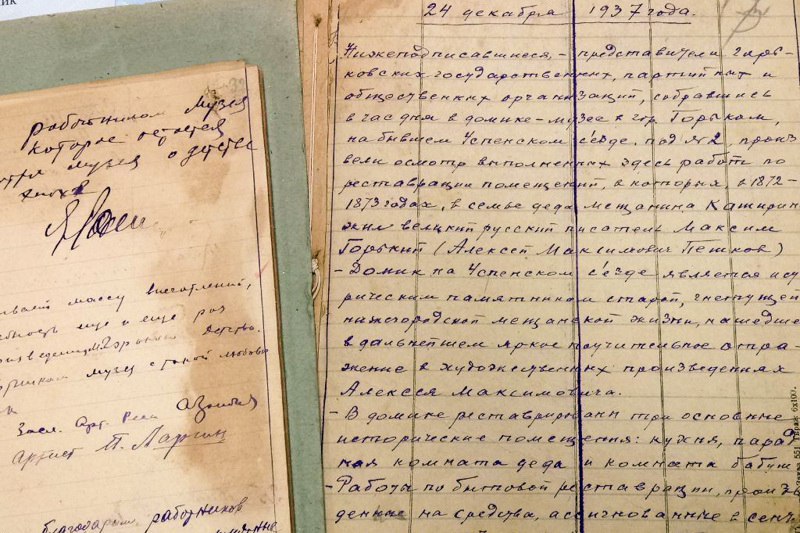 ник
работником Музея
которое остается
музея о детстве
массу впечатлений,
еще и еще раз
детство.
музей с такой любовью
Засл. Арт. Респ.
Артист П. Ларгин
благодарим работников
24 декабря 1937 года.
Нижеподписавшиеся, - представители горь-
ковских государственных, партийных и
общественных организаций, собравшись
в час дня в домике-музее в гор. Горьком,
на бывшем Успенском с'езде. под №2, произ
вели осмотр выполненных здесь работ по
реставрации помещений, в которых, в 1872-
1873 годах, в семье деда мещанина Каширин
жил великий русский писатель Максим
Горький (Алексей Максимович Пешков)
- Домик на Успенском с'езде является исто
рическим памятником старой, гнетущей
нижегородской мещанской жизни, нашедше
в дальнейшем яркое поучительное отра-
жение в художественных произведениях
Алексея Максимовича.
- В домике реставрированы три основные
исторические помещения: кухня, парад
ная комната деда и комната бабуш
- Работы по бытовой реставрации, произв
денные на средства, ассигнованные в сент
551 Тираж 6х100.